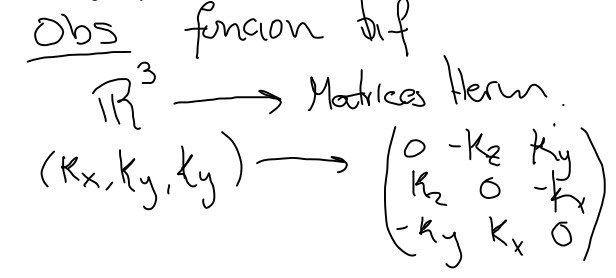 Obs función dif
ℝ³ ⟶ Matrices Herm.
(Kx, Ky, Ky) ⟶ (0 -Kz Ky
Kz 0 -Kx
-Ky Kx 0)